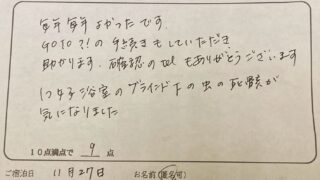 毎年毎年よかったです。
GOTO?!の手続きもしていただき
助かります。確認のtelもありがとうございます
女子浴室のブラインド下の虫の死骸が
気になりました
10点満点で 9 点
ご宿泊日 11月27日 お名前(匿名可)